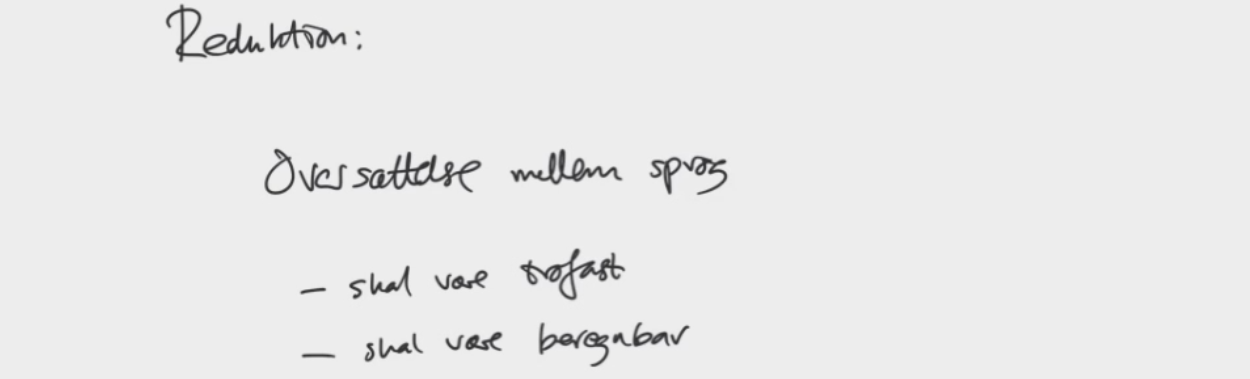 Reduktion:
Oversættelse mellem sprog
- skal være trofast
- skal være beregnbar